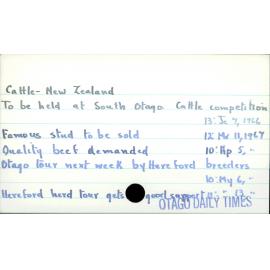 Cattle - New Zealand
To be held at South Otago Cattle competition
13: Je 7, 1966
Famous stud to be sold 12: Mr 11, 1967
Quality beef demanded 10: Ap 5, "
Otago tour next week by Hereford breeders
10: My 6, "
Hereford herd tour gets good support 11: " 13. "
OTAGO DAILY TIMES